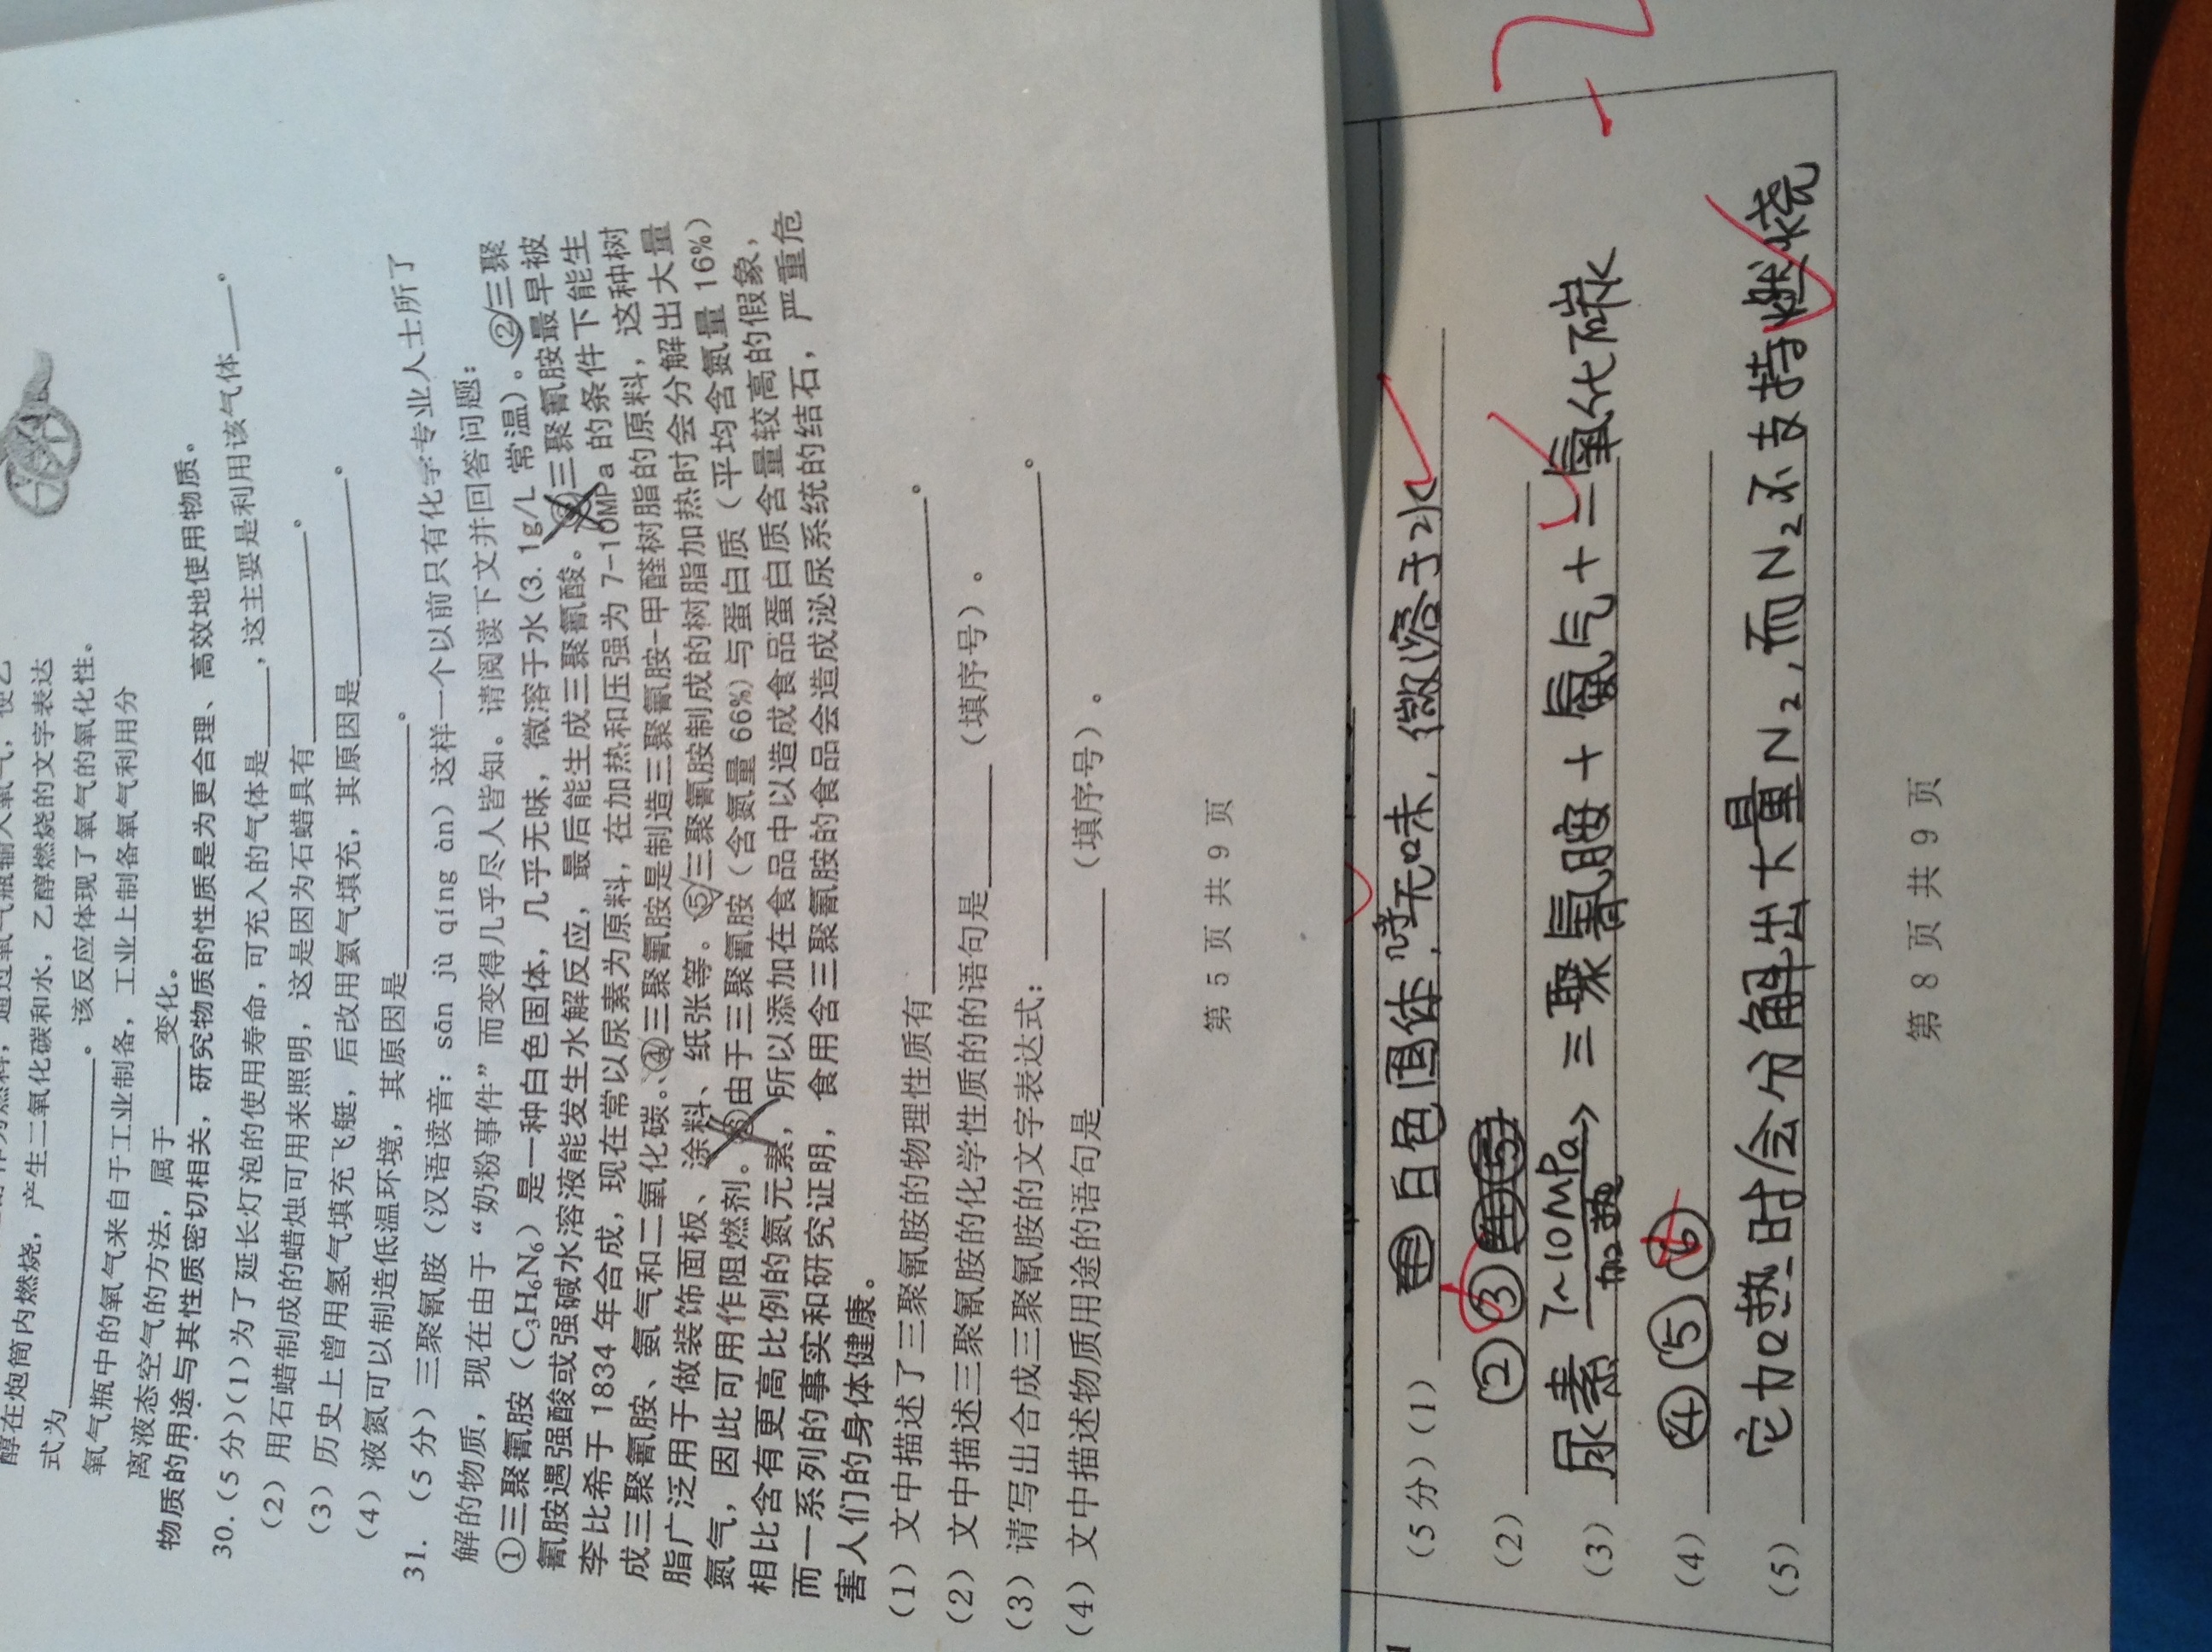 醇在炮筒内燃烧，产生二氧化碳和水，乙醇燃烧的文字表达
式为____________。该反应体现了氧气的氧化性。
氧气瓶中的氧气来自于工业制备，工业上制备氧气利用分
离液态空气的方法，属于____变化。
物质的用途与其性质密切相关，研究物质的性质是为更合理、高效地使用物质。
30.（5 分）（1）为了延长灯泡的使用寿命，可充入的气体是____，这主要是利用该气体____。
（2）用石蜡制成的蜡烛可用来照明，这是因为石蜡具有____________。
（3）历史上曾用氢气填充飞艇，后改用氦气填充，其原因是____________。
（4）液氮可以制造低温环境，其原因是____________。
31. （5 分）三聚氰胺（汉语读音：sān jù qíng àn）这样一个以前只有化学专业人士所了
解的物质，现在由于“奶粉事件”而变得几乎尽人皆知。请阅读下文并回答问题：
①三聚氰胺（C₃H₆N₆）是一种白色固体，几乎无味，微溶于水(3.1g/L 常温)。②三聚
氰胺遇强酸或强碱水溶液能发生水解反应，最后能生成三聚氰酸。③三聚氰胺最早被
李比希于 1834 年合成，现在常以尿素为原料，在加热和压强为 7-10MPa 的条件下能生
成三聚氰胺、氨气和二氧化碳。④三聚氰胺是制造三聚氰胺-甲醛树脂的原料，这种树
脂广泛用于做装饰面板、涂料、纸张等。⑤三聚氰胺制成的树脂加热时会分解出大量
氮气，因此可用作阻燃剂。⑥由于三聚氰胺（含氮量 66%)与蛋白质（平均含氮量 16%）
相比含有更高比例的氮元素，所以添加在食品中以造成食品蛋白质含量较高的假象，
而一系列的事实和研究证明，食用含三聚氰胺的食品会造成泌尿系统的结石，严重危
害人们的身体健康。
（1）文中描述了三聚氰胺的物理性质有____________。
（2）文中描述三聚氰胺的化学性质的的语句是______（填序号）。
（3）请写出合成三聚氰胺的文字表达式：____________。
（4）文中描述物质用途的语句是____________（填序号）。
第 5 页 共 9 页
（5 分）（1）白色固体，几乎无味，微溶于水
（2）②③
（3）尿素 7~10MPa 加热 → 三聚氰胺 + 氨气 + 二氧化碳
-2
（4）④⑤⑥
（5）它加热时会分解出大量N₂，而N₂不支持燃烧
第 8 页 共 9 页